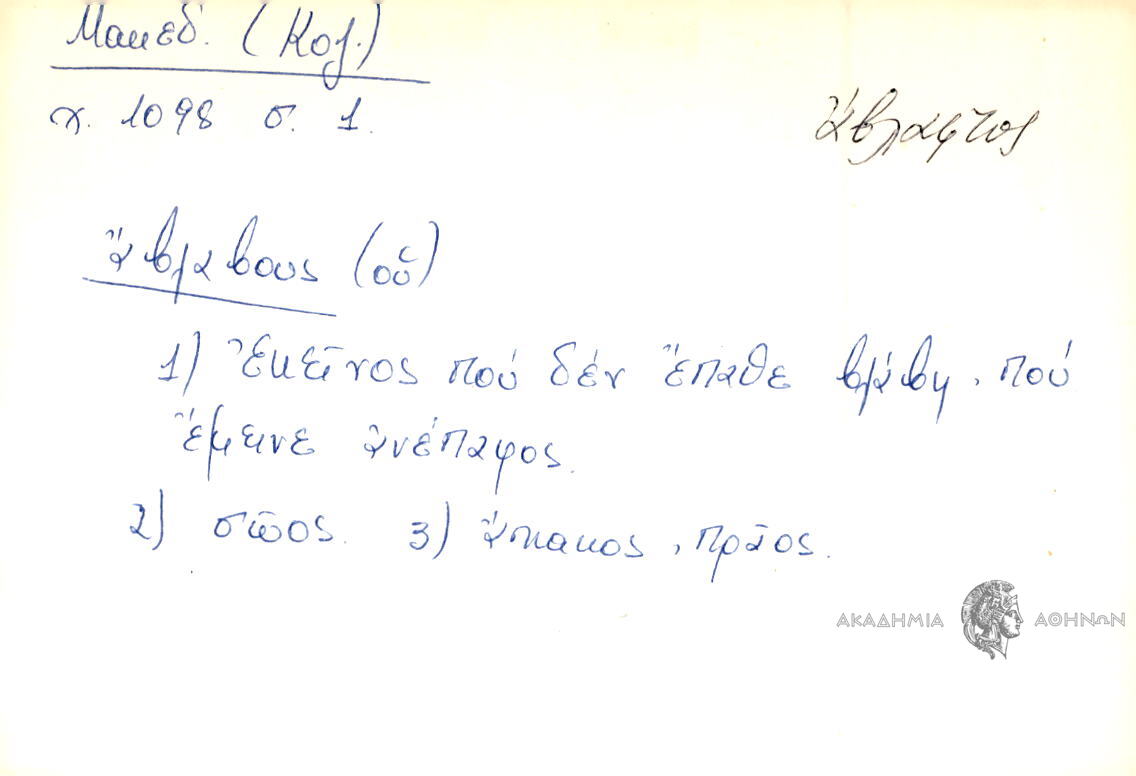 Μακεδ. (Κοζ.)
χ. 1098 σ. 1.
ἄβλαφτος
ἄβλαβους (οὑ)
1) Ἐκεῖνος πού δέν ἔπαθε βλάβη, πού
ἔμεινε ἀνέπαφος.
2) σῶος. 3) ἄκακος, πρᾶος.
ΑΚΑΔΗΜΙΑ ΑΘΗΝΩΝ